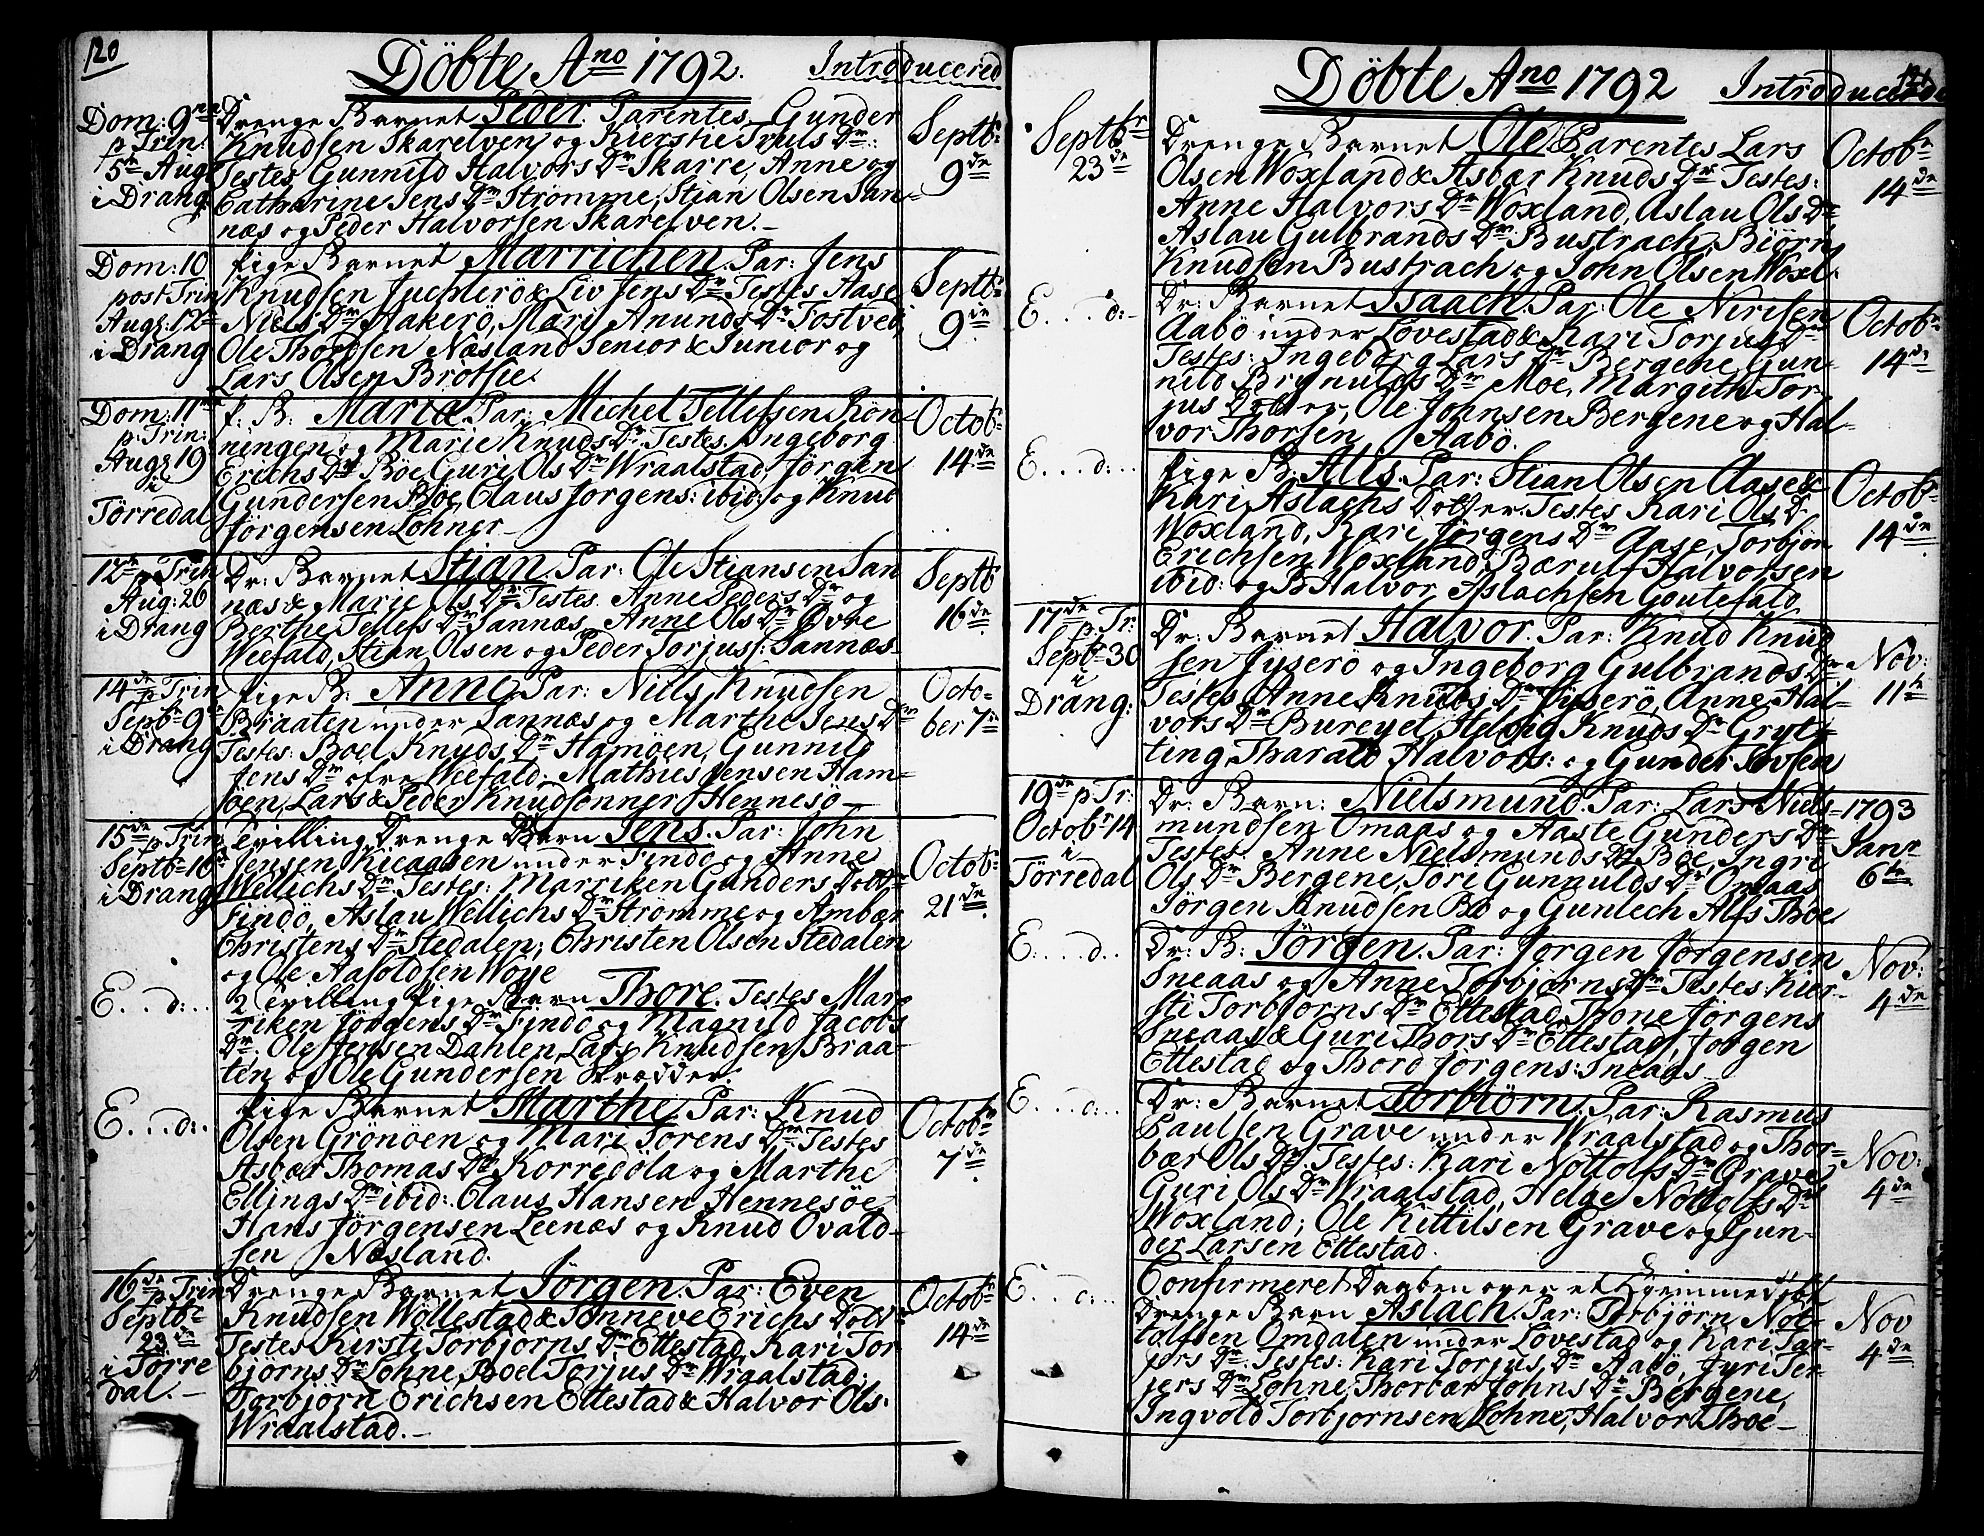 120
Döbte Ano 1792. Introducered
Dom: 9na
p Trin:
5te Aug:
i Drang
Drenge Barnet Peder. Parentes Gunder
Knudsen Skarelven og Kierstie Truls Dr:
Testes Gunnild Halvors Dr Skarre, Anne og
Catharine Jens Dr Strömme, Stian Olsen San-
næs og Peder Halvorsen Skarelven.
Septbr
9de
Dom: 10
post Trin
Aug: 12te
i Drang
Pige Barnet Marrichen. Par: Jens
Knudsen & Liv Jens Dr Testes Aase
Niels Dr Aakerö, Mari Anunds Dr Tostvet,
Ole Thordsen Næsland Senior & Junior og
Lars Olsen Brotsie.
Septbr
9de
Dom: 11ma
p Trin:
Aug: 19
i
Törredal
P: B: Maria. Par: Michel Tellefsen Rön-
ningen og Marie Knuds Dr. Testes Ingeborg
Erichs Dr Böe, Guri Ols Dr Wraalstad, Jörgen
Gundersen Böe, Claus Jörgens: ibid: og Knud
Jörgensen Lohner
Octobr
14de
12te p Trin
Aug: 26
i Drang
Dr: Barnet Stian. Par: Ole Stiansen San
næs & Marie Ols Dr Testes Anne Peders Dr og
Berthe Tellefs Dr Sannæs, Anne Ols Dr Övre
Weefald, Stian Olsen og Peder Torjuss: Sannæs
Septb
16de
14de p Trin
Septbr 9de
i Drang
Pige B: Anne. Par: Niels Knudsen
Braaten under Sannæs og Marthe Jens Dr
Testes: Boel Knuds Dr Hamöen, Gunnild
Jens Dr öfre Weefald. Mathies Jensen Ham-
öen, Lars & Peder Knudsønner Hennesö
Octo-
ber 7de
15de p Trin
Septbr 16de
i Drang
Tvilling Drenge Barn Jens. Par: John
Jensen under Findö og Anne
Wellichs Dr Testes: Marriken Gunders Dotter
Findö, Aslau Wellichs Dr Strömme og Ambær
Christens Dr Stedalen; Christen Olsen Stedalen
og Ole Aasoldsen Woje
Octobr
21de
E. . . d: . .
2 Tvilling Pige Barn Thore. Testes Mar-
riken Jörgens Dr Findö og Magnild Jacobs
Dr. Ole Jensen Dahlen, Lars Knudsen Braa-
ten og Ole Gundersen Skrædder.
E. . . d: .
Pige Barnet Marthe. Par: Knud
Olsen Grönöen og Mari Sörens Dr Testes
Asbær Thomas Dr Korredöla og Marthe
Ellings Dr ibid: Claus Hansen Hennesöe,
Hans Jörgensen Leenæs og Knud Ovald-
sen Næsland.
Octobr
7de
16de p Trin
Septbr
23de
i Törre
dal.
Drenge Barnet Jörgen. Par: Even
Knudsen Wollestad & Sönneve Erichs Dott
Testes Kirsti Torbjörns Dr Ettestad, Kari Tor
björns Dr Lohne, Boel Torjus Dr Wraalstad;
Torbjörn Erichsen Ettestad & Halvor Ols:
Wraalstad.
Octobr
14de
121
Döbte Ano 1792 Introducerede
Septbr
23de
Drenge Barnet Ole. Parentes Lars
Olsen Woxland & Asbær Knuds Dr Testes:
Anne Halvors Dr Woxland, Aslau Ols Dr
Aslau Gulbrands Dr Bustrach, Biörn
Knudsen Bustrach og John Olsen Woxl.
Octobr
14de
E. . . . d:
Dr: Barnet Isaach. Par: Ole Nirisen
Aabö under Lövestad & Kari Torjus Dr
Testes: Ingeborg Lars Dr Bergene, Gun-
nild Brynulds Dr Moe, Margith Tor-
jus Dotter, Ole Johnsen Bergene og Hal-
vor Thorsen Aabö.
Octobr
14de
E. . . d: . .
Pige B: Alis. Par: Stian Olsen Aase &
Kari Aslachs Dotter. Testes Kari Ols Dr
Woxland, Kari Jörgens Dr Aase, Torbjörn
Erichsen Woxland, Bærulf Halvorsen
ibid: og Halvor Aslachsen Goutefald
Octobr
14de
17de p Tr:
Septbr 30
i
Drang:
Dr: Barnet Halvor. Par: Knud Knud
sen Jyserö og Ingeborg Gulbrands Dr
Testes Anne Knuds Dr Jyserö, Anne Hal-
vors Dr Bureyet, Helvig Knuds Dr Gryt-
ting, Tharald Halvors: og Gunder Tovsen
Nov:
11te
19de p Tr:
Octobr 14
i
Törredal
Dr: Barn: Nielsmund. Par: Lars Niels-
mundsen Omaas og Aaste Gunders Dr
Testes: Anne Nielsmunds Dr Böe, Ingri
Ols Dr Bergene, Tori Gunnulds Dr Omaas
Jörgen Knudsen Bö og Gunlech Alfs Thoe
1793
Janr
6te
E. . . . d. .
Dr: B: Jörgen. Par: Jörgen Jörgensen
Sneaas og Anne Torbjörns Dr Testes Kier-
sti Torbjorns Dr Ettestad, Thone Jörgens
Sneaas & Guri Thors Dr Ettestad, Jörgen
Ettestad og Thord Jörgens: Sneaas
Nov:
4de
E. . . d: . .
Dr: Barnet Torbiörn. Par: Rasmus
Paulsen Grave under Wraalstad og Thor-
bær Ols Dr. Testes: Kari Nottolfs Dr Grave
Guri Ols Dr Wraalstad, Helge Nottolfs Dr
Woxland; Ole Kittilsen Grave og Gun-
der Larsen Ettestad.
Nov:
4de
E. . . d: . .
Confirmeret Daaben over et Hiemmedöbt
Drenge Barn Aslach. Par: Torbjörn Not-
tolfsen Omdalen under Lövestad og Kari Tar-
jers Dr. Testes: Kari Torjus Dr Aabö, Jyri Ter-
jers Dr Lohne, Thorbær Johns Dr Bergene,
Ingvold Torbjornsen Lohne, Halvor Thoe
Nov
4de